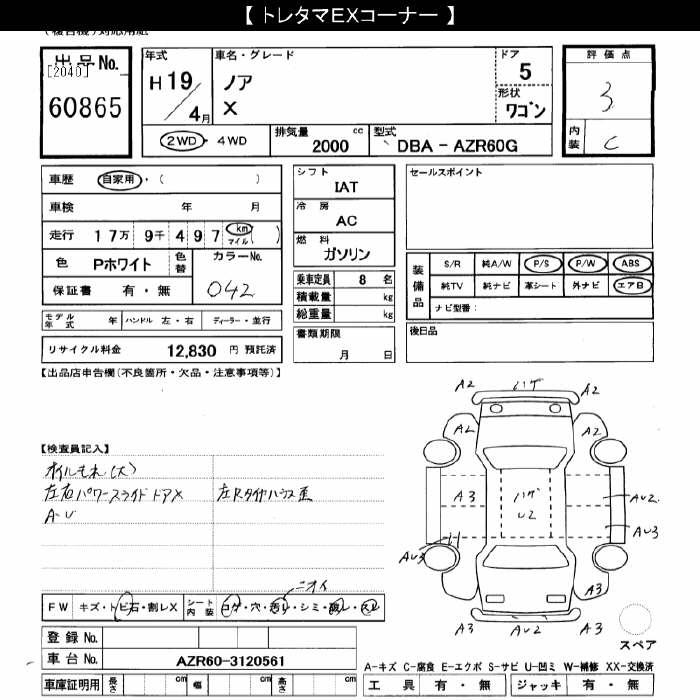 【 トレタマEXコーナー 】
出品No. 年式 車名・グレード ドア 評価点
[2040] H19 ノア 5 3
60865 4月 X 形状 ワゴン
2WD・4WD 排気量 2000 cc 型式 DBA - AZR60G 内装 C
車歴 自家用・( ) シフト IAT セールスポイント
車検 年 月 冷房 AC
走行 17万 9千 497 km マイル ( ) 燃料 ガソリン
色 Pホワイト 色替 カラーNo. 042
保証書 有・無
乗車定員 8 名
積載量 kg
総重量 kg
装備品 S/R 純A/W P/S P/W ABS
純TV 純ナビ 革シート 外ナビ エアB
ナビ型番:
モデル年式 年 ハンドル 左・右 ディーラー・並行
書類期限 月 日 後日品
リサイクル料金 12,830 円 預託済
【出品店申告欄(不良箇所・欠品・注意事項等)】
【検査員記入】
オイルもれ(大)
左右パワースライドドアX 左Rタイヤハウス歪
A・U
A2 ハゲ A2
A2 A2
A3 ハゲ U2 AU2
AU3 AU3
A3 A3
A3 AU2 A3
スペア
ニオイ
FW キズ・トビ石・割レX シート内装 コゲ・穴・汚レ・シミ・破レ・スレ
登録 No.
車台 No. AZR60-3120561
A-キズ C-腐食 E-エクボ S-サビ U-凹ミ W-補修 XX-交換済
車庫証明用 長さ cm 幅 cm 高さ cm 工具 有・無 ジャッキ 有・無